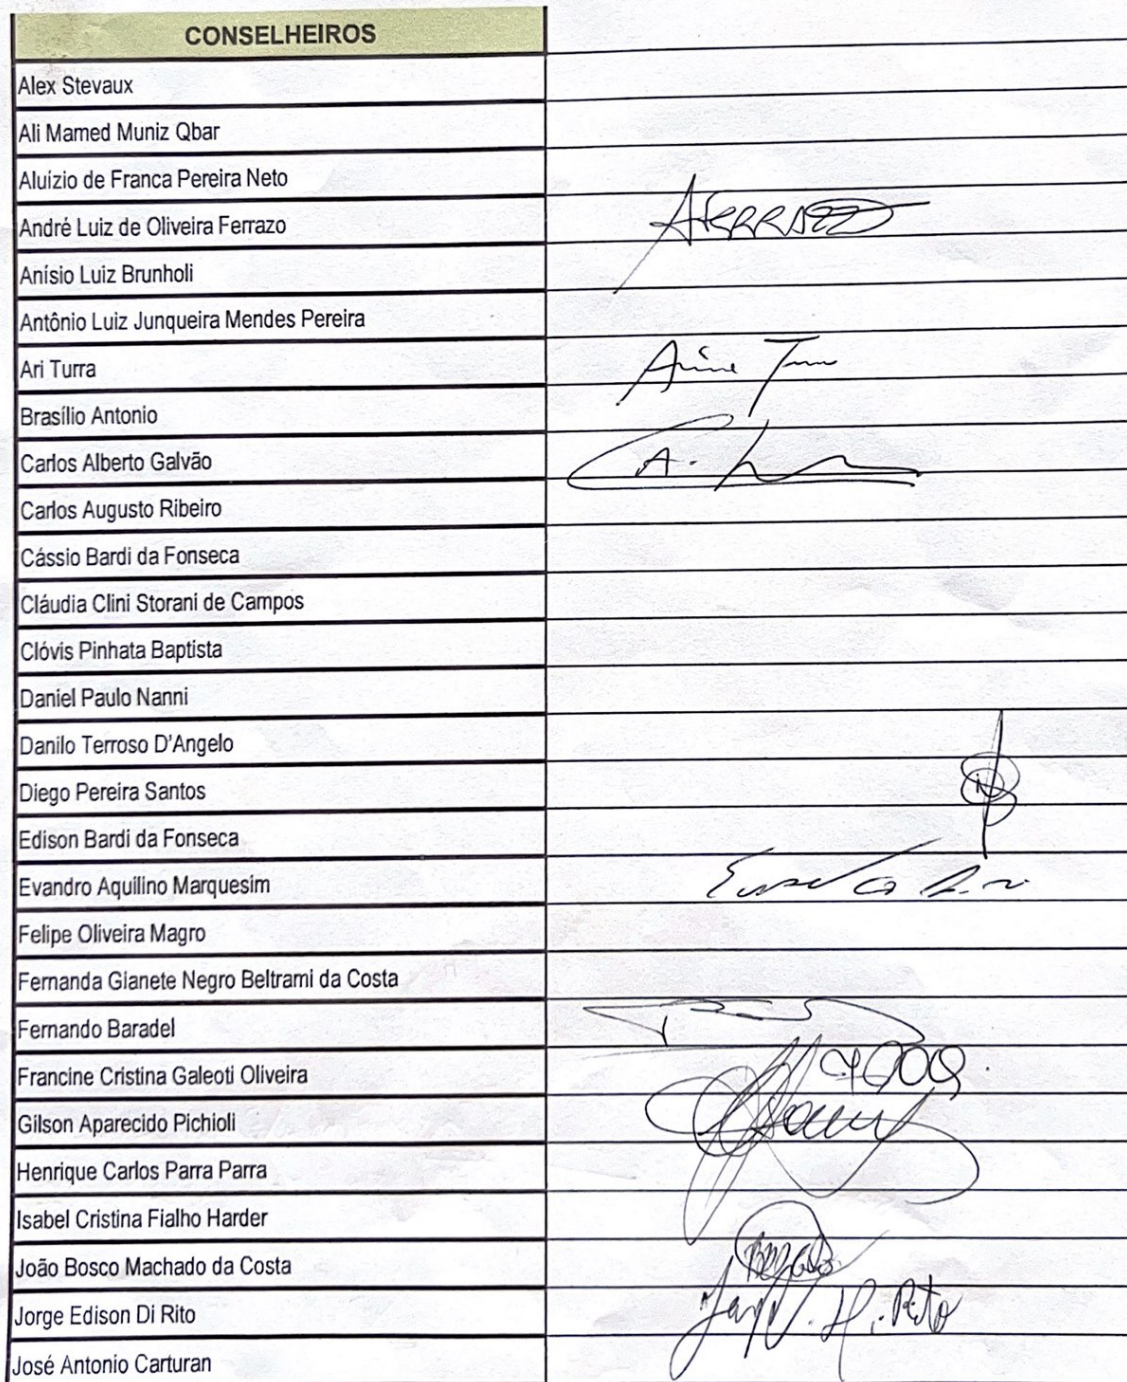 CONSELHEIROS
Alex Stevaux
Ali Mamed Muniz Qbar
Aluízio de Franca Pereira Neto
André Luiz de Oliveira Ferrazo
Anísio Luiz Brunholi
Antônio Luiz Junqueira Mendes Pereira
Ari Turra
Brasílio Antonio
Carlos Alberto Galvão
Carlos Augusto Ribeiro
Cássio Bardi da Fonseca
Cláudia Clini Storani de Campos
Clóvis Pinhata Baptista
Daniel Paulo Nanni
Danilo Terroso D'Angelo
Diego Pereira Santos
Edison Bardi da Fonseca
Evandro Aquilino Marquesim
Felipe Oliveira Magro
Fernanda Gianete Negro Beltrami da Costa
Fernando Baradel
Francine Cristina Galeoti Oliveira
Gilson Aparecido Pichioli
Henrique Carlos Parra Parra
Isabel Cristina Fialho Harder
João Bosco Machado da Costa
Jorge Edison Di Rito
José Antonio Carturan